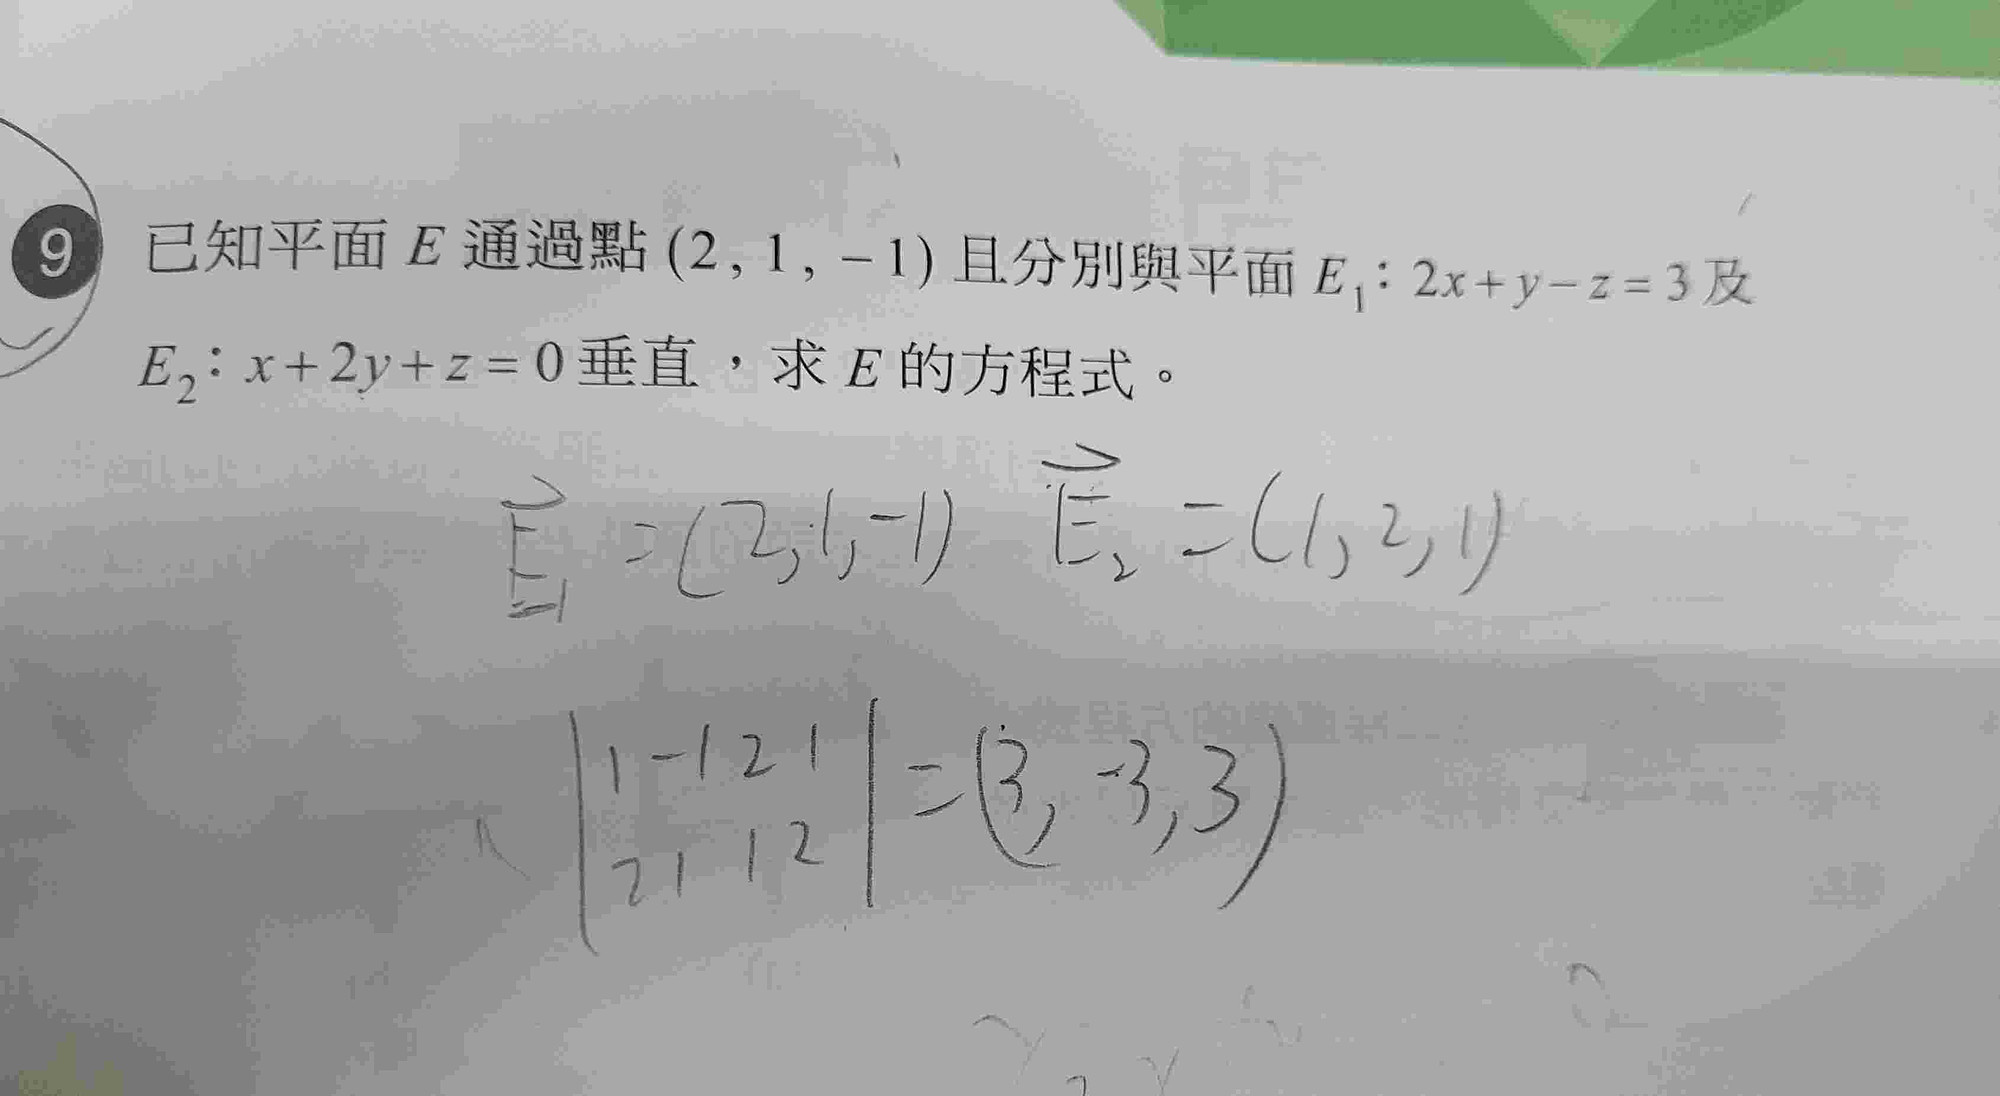 9 已知平面 E 通過點 (2, 1, -1) 且分別與平面 E₁: 2x+y-z=3 及
E₂: x+2y+z=0 垂直，求 E 的方程式。
E₁ = (2, 1, -1) E₂ = (1, 2, 1)
| 1 -1 2 1 | = (3, -3, 3)
2 1 1 2